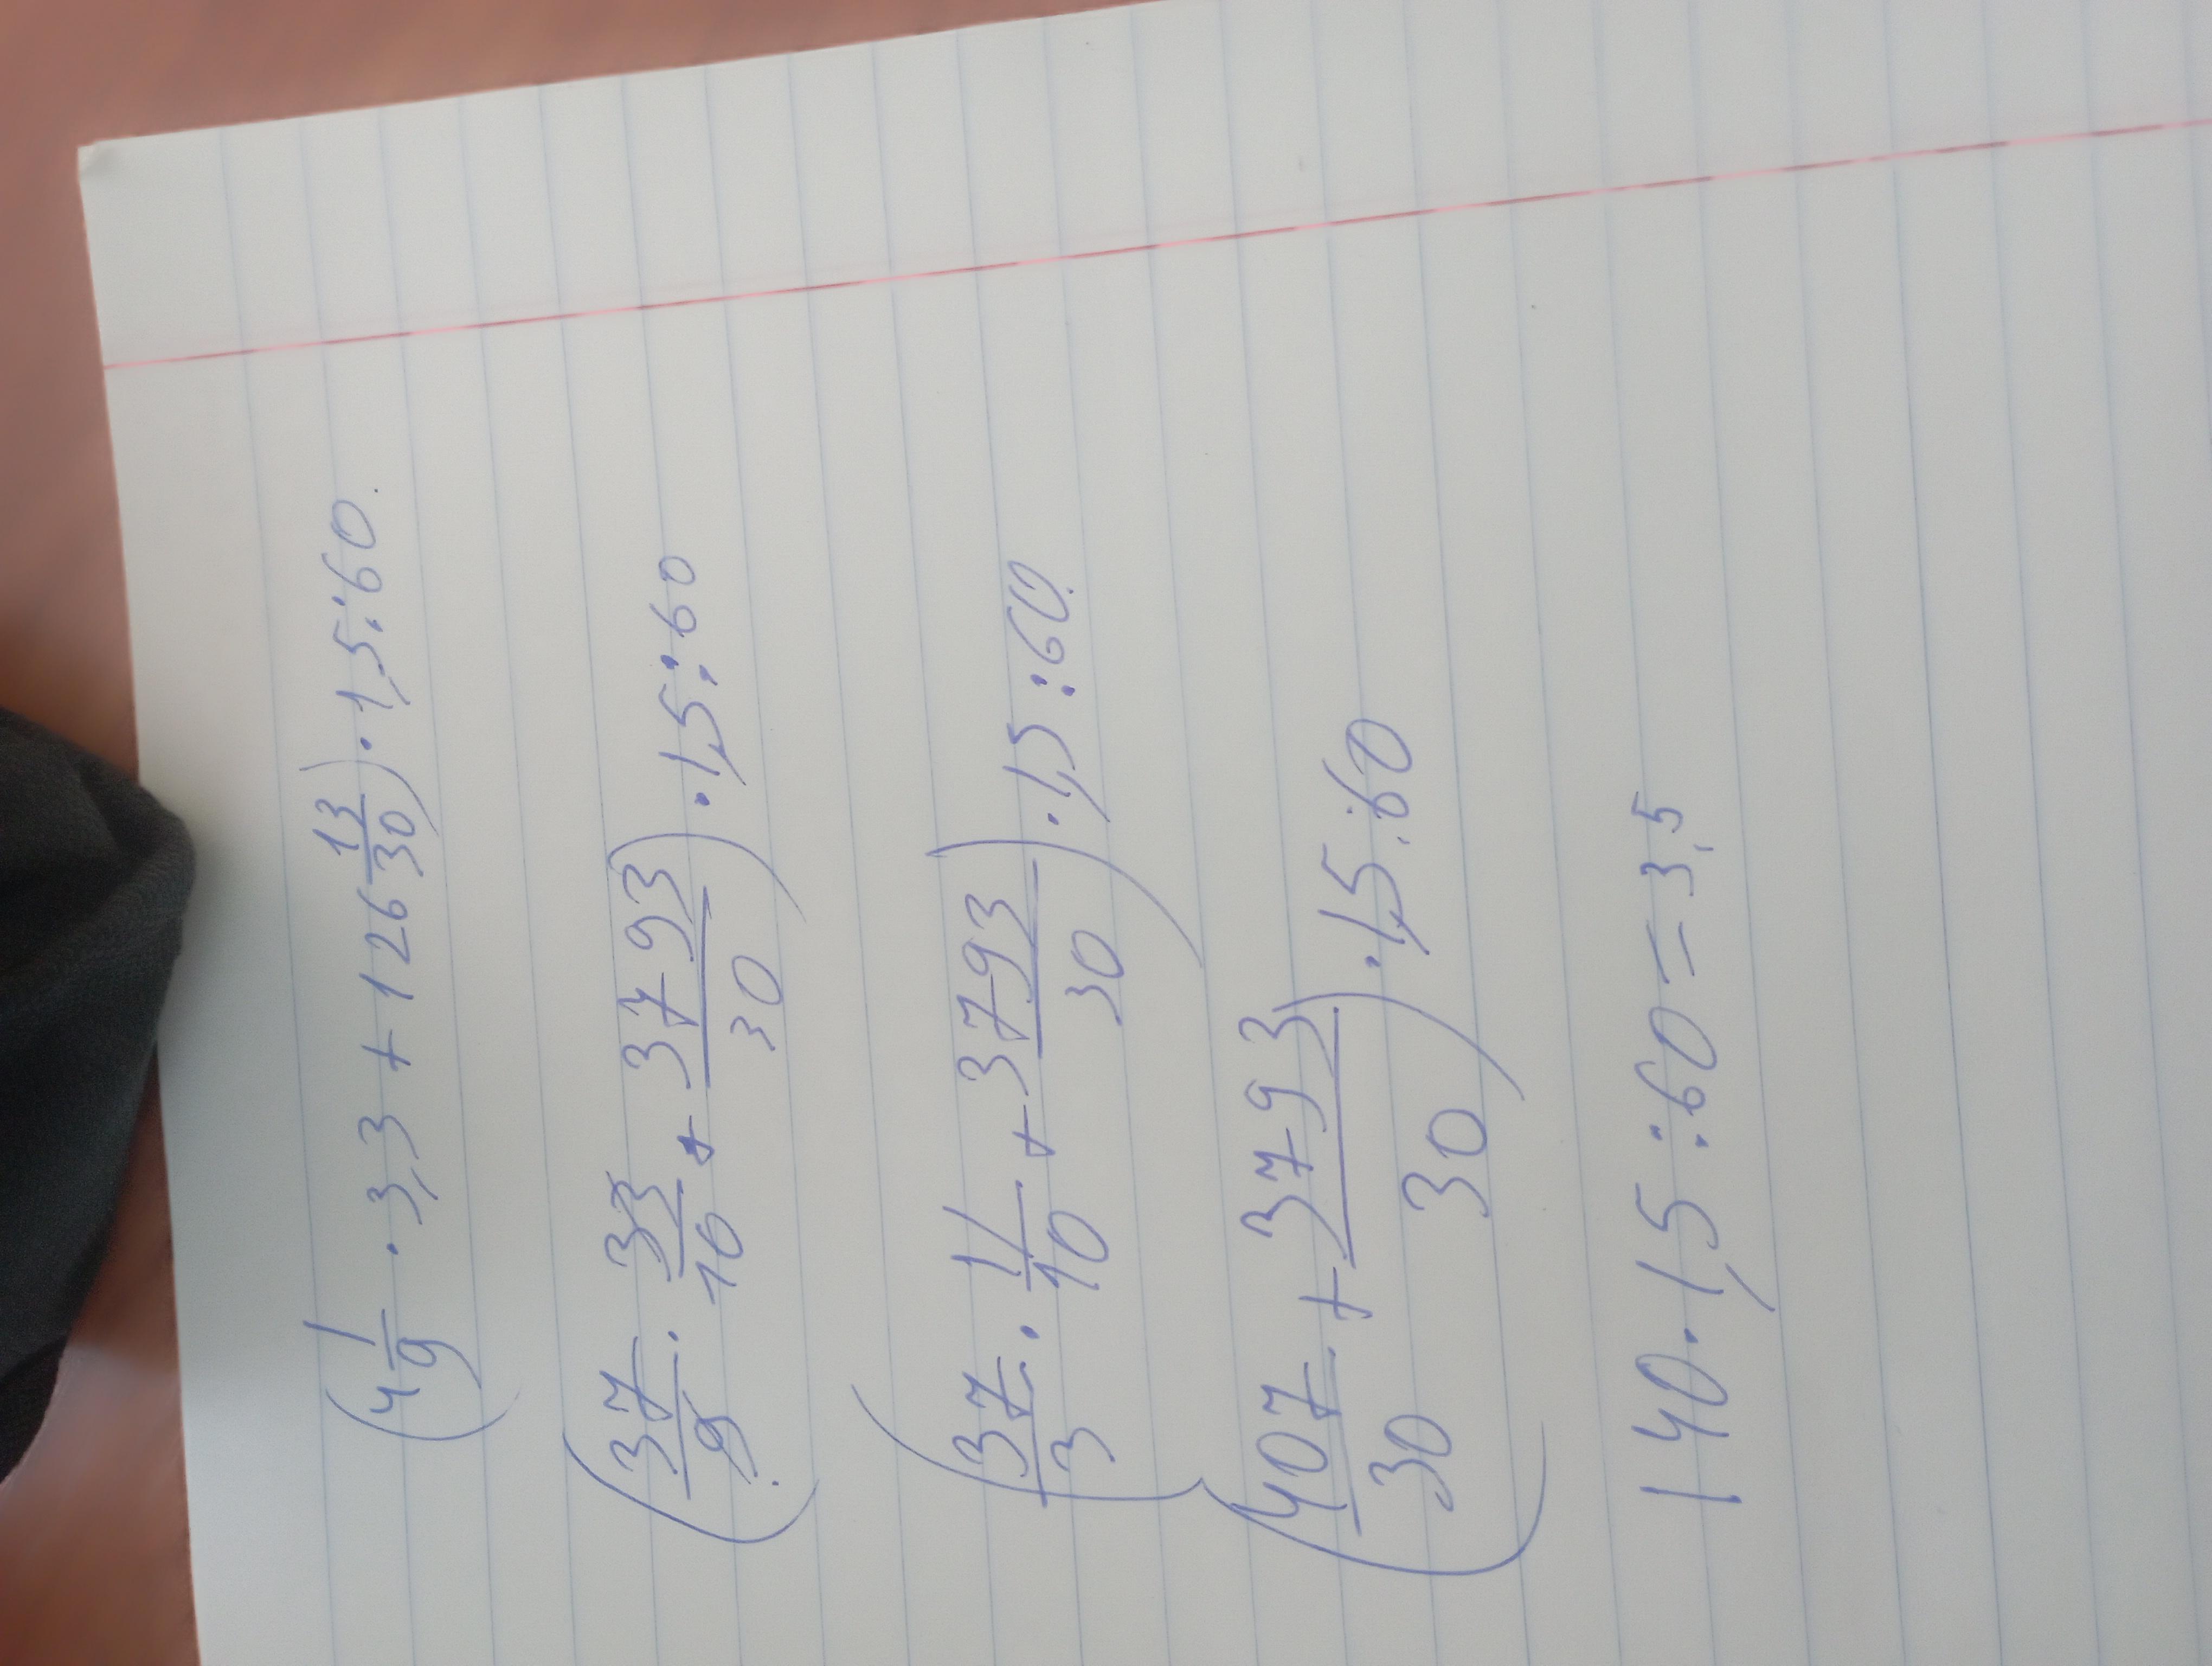 (4 1/9 · 3,3 + 126 13/30) · 1,5 : 60.
(37/9 · 33/10 + 3793/30) · 1,5 : 60
(37/3 · 11/10 + 3793/30) · 1,5 : 60
(407/30 + 3793/30) · 1,5 : 60
140 · 1,5 : 60 = 3,5